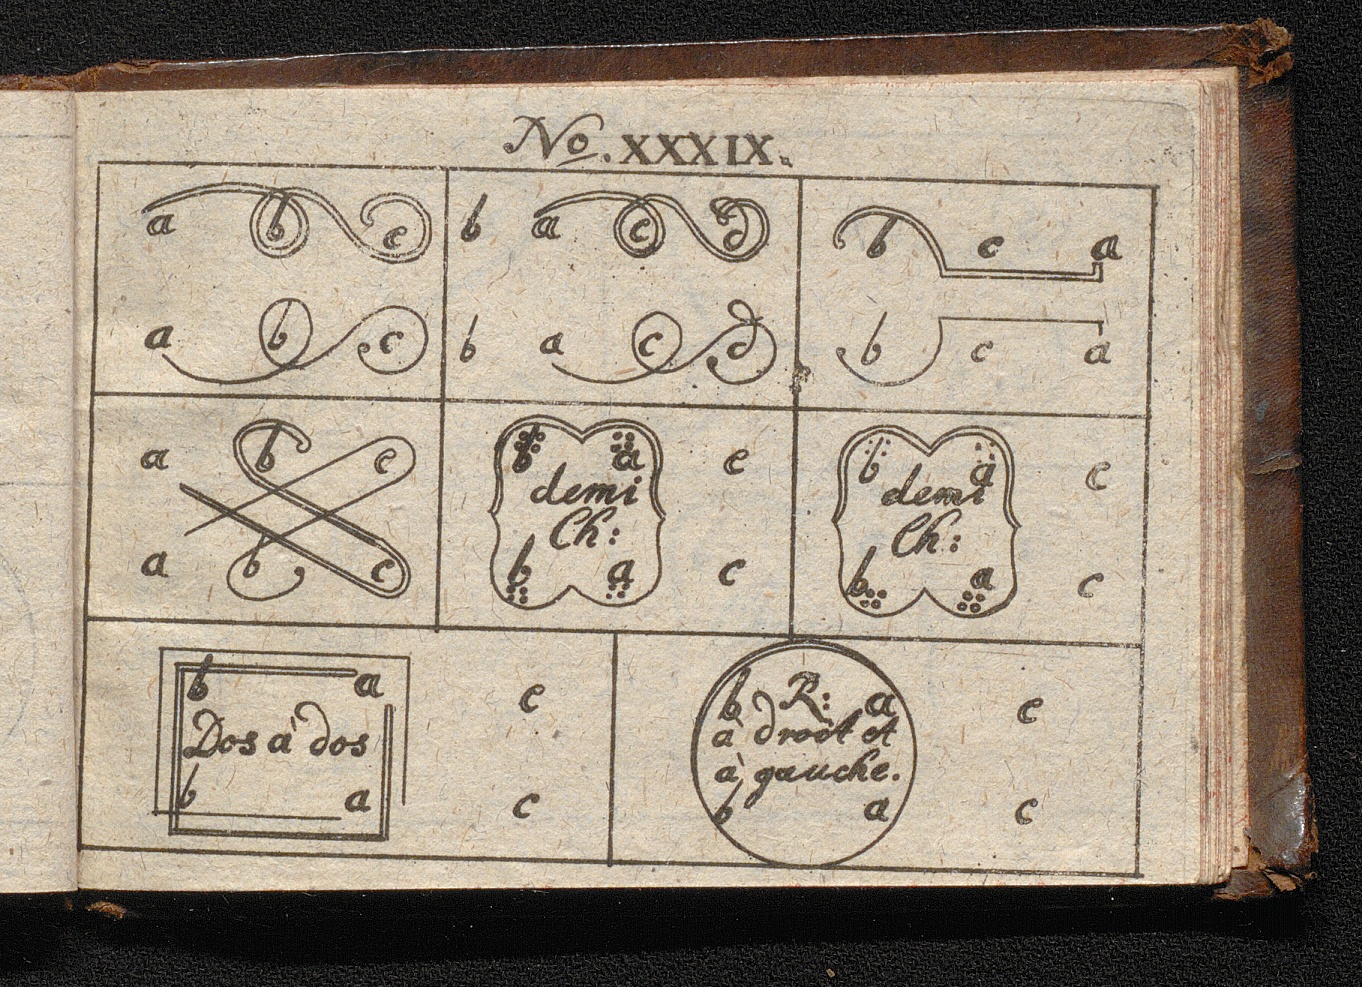 No. XXXIX.
a b c
a b c
b a c d
b a c d
b c a
b c a
a b c
a b c
b a c
demi
Ch:
b a c
b a c
demi
Ch:
b a c
b a c
Dos à dos
b a c
b R: a c
à droit et
à gauche.
b a c